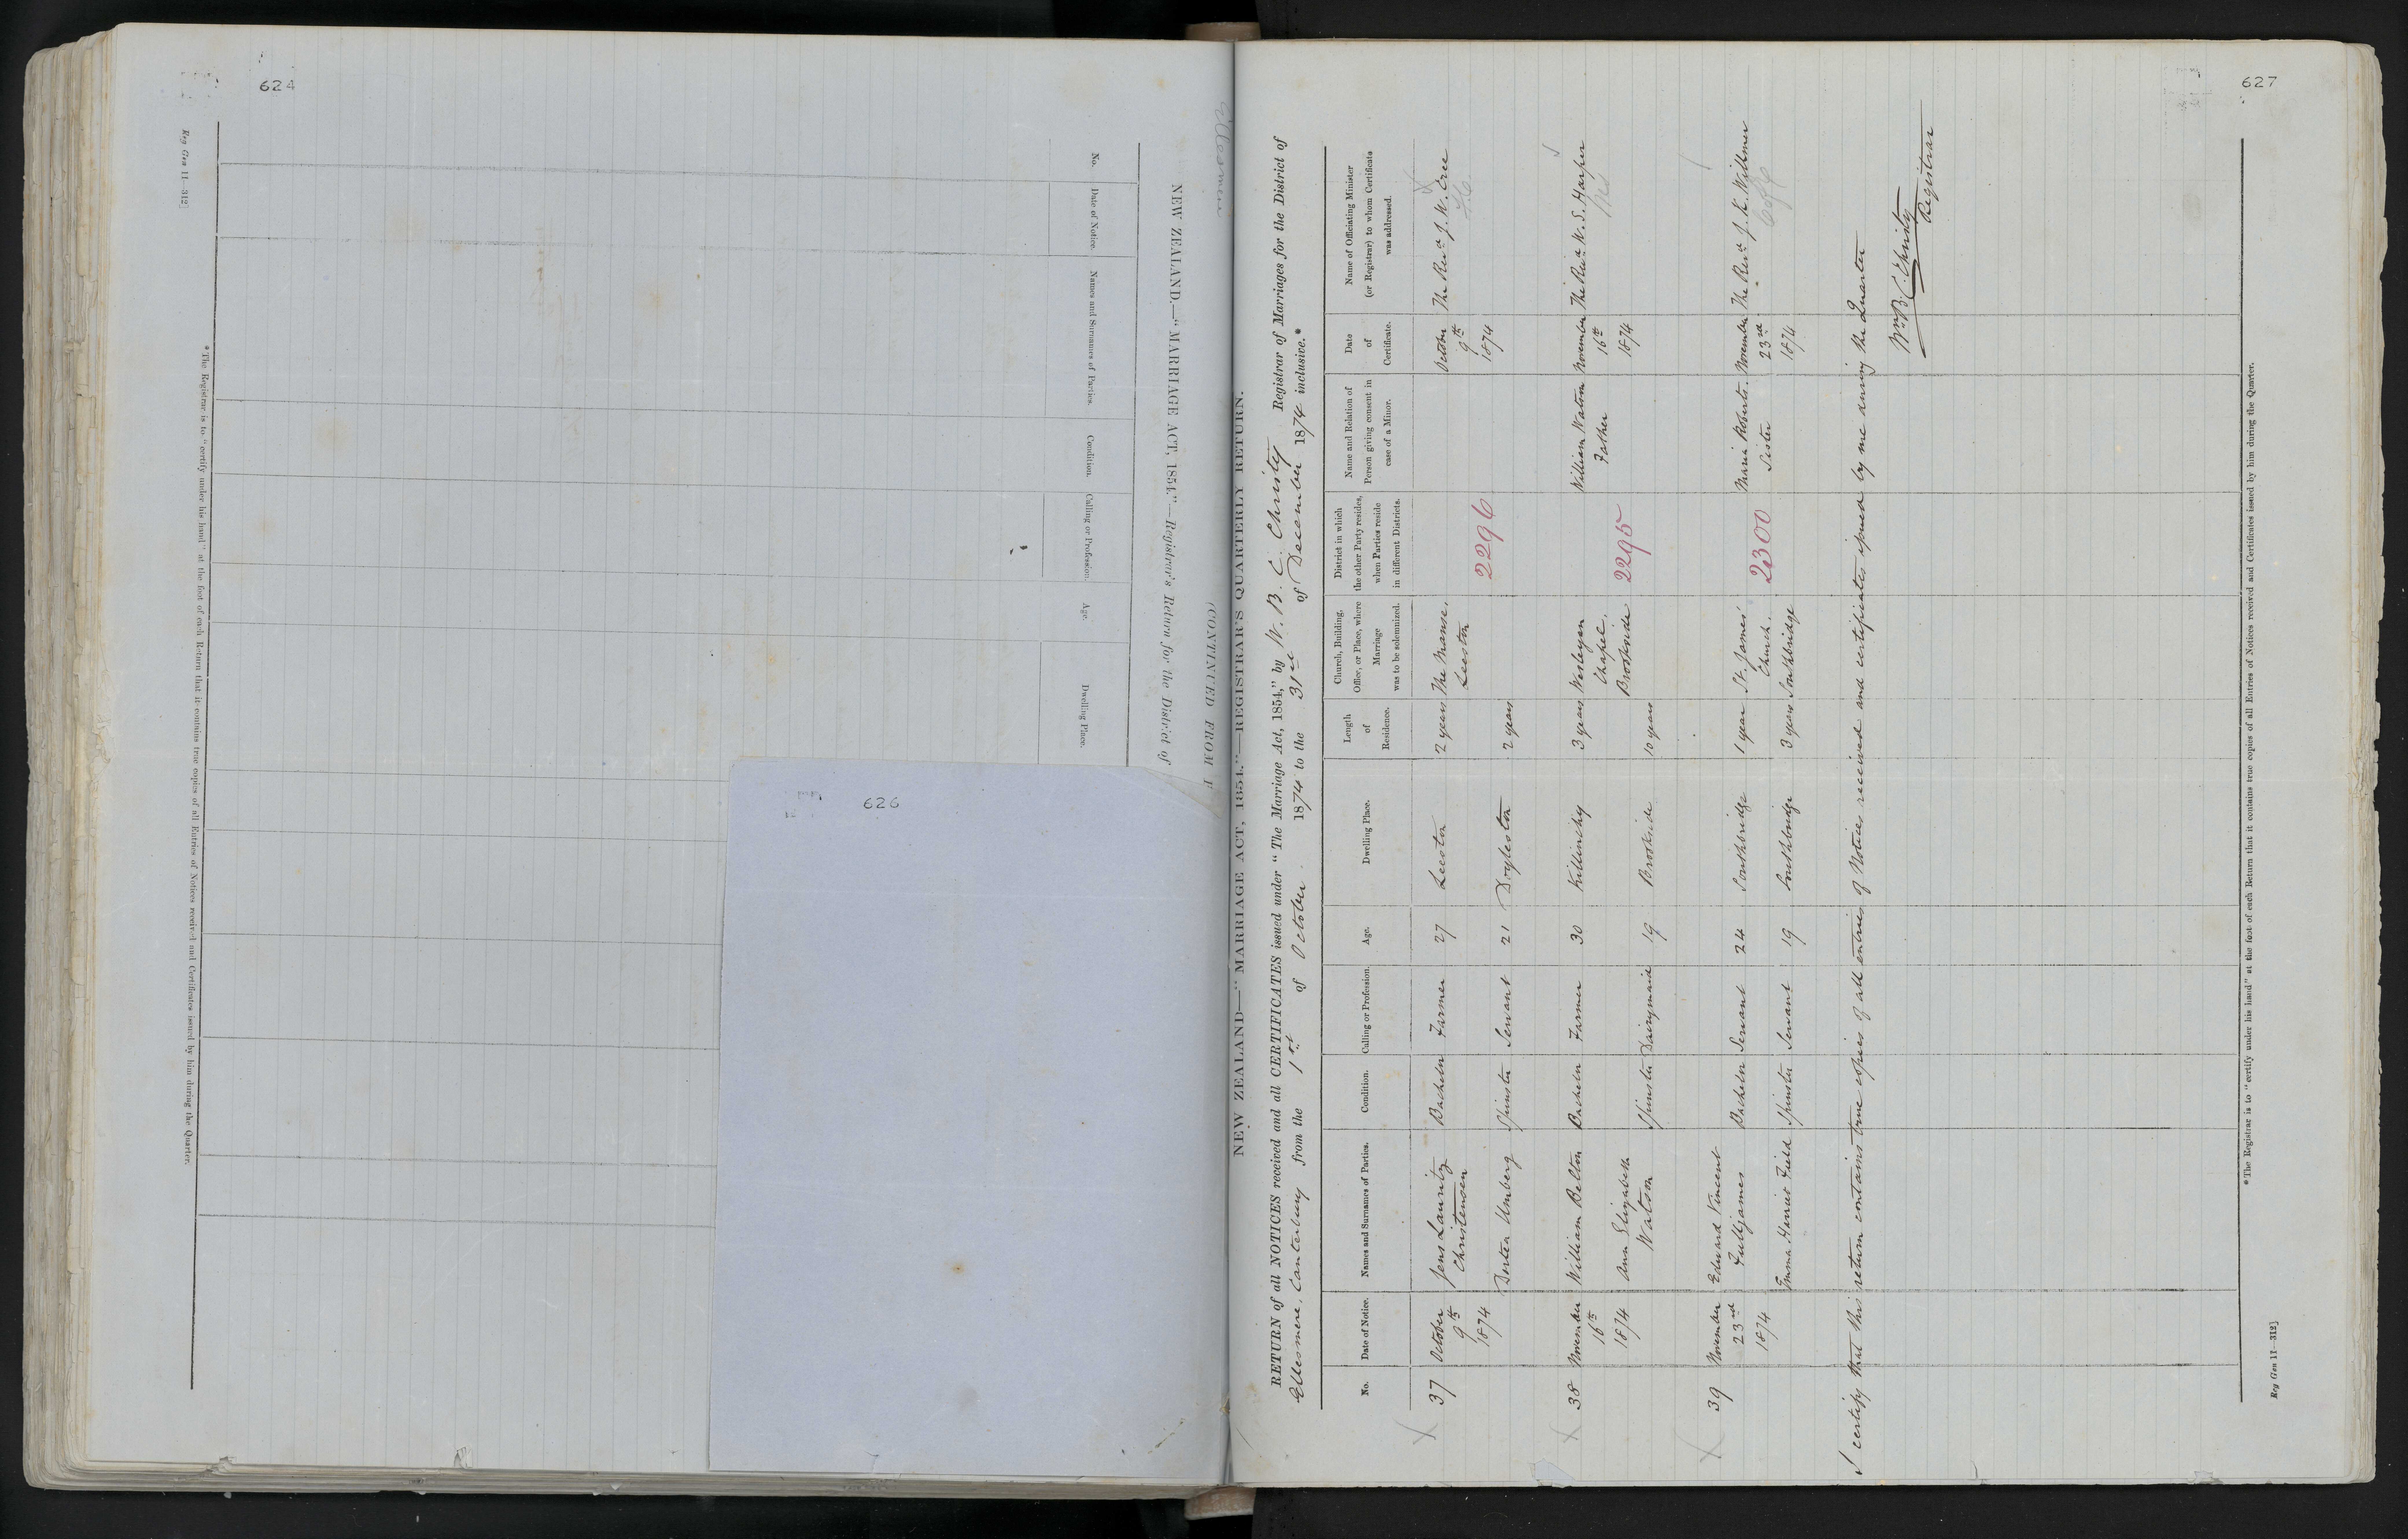 624
Reg Gen 11—312]
NEW ZEALAND.—"MARRIAGE ACT, 1854."—Registrar's Return for the District of
(CONTINUED FROM
No.
Date of Notice.
Names and Surnames of Parties.
Condition.
Calling or Profession.
Age.
Dwelling Place.
* The Registrar is to "certify under his hand" at the foot of each Return that it contains true copies of all Entries of Notices received and Certificates issued by him during the Quarter.
626
Ellesmere
627
NEW ZEALAND—"MARRIAGE ACT, 1854."—REGISTRAR'S QUARTERLY RETURN.
RETURN of all NOTICES received and all CERTIFICATES issued under "The Marriage Act, 1854," by W. B. C. Christy Registrar of Marriages for the District of
Ellesmere, Canterbury from the 1st of October 1874 to the 31st of December 1874 inclusive.*
No.
Date of Notice.
Names and Surnames of Parties.
Condition.
Calling or Profession.
Age.
Dwelling Place.
Length of Residence.
Church, Building, Office, or Place, where Marriage was to be solemnized.
District in which the other Party resides, when Parties reside in different Districts.
Name and Relation of Person giving consent in case of a Minor.
Date of Certificate.
Name of Officiating Minister (or Registrar) to whom Certificate was addressed.
37 October Jens Lauritz Bachelor Farmer 27 Leeston 2 years The Manse, October The Revd J. W. Cree
9th Christensen Leeston 9th
1874 2296 1874
Dorten Umberg Spinster Servant 21 Doyleston 2 years
38 November William Belton Bachelor Farmer 30 Killinchy 3 years Wesleyan William Watson November The Revd W. S. Harper
16th Chapel, Father 16th
1874 Ann Elizabeth Spinster Dairymaid 19 Brookside 10 years Brookside 2295 1874
Watson
39 November Edward Vincent
23rd Fulljames Bachelor Servant 24 Southbridge 1 year St. James' Maria Roberts. November The Revd J. K. Willmer
1874 Church, 2300 Sister 23rd
Emma Harriet Field Spinster Servant 19 Southbridge 3 years Southbridge 1874
I certify that this return contains true copies of all entries of Notices received and certificates issued by me during the Quarter
Wm B. C. Christy
Registrar
* The Registrar is to "certify under his hand" at the foot of each Return that it contains true copies of all Entries of Notices received and Certificates issued by him during the Quarter.
Reg Gen 11—312]